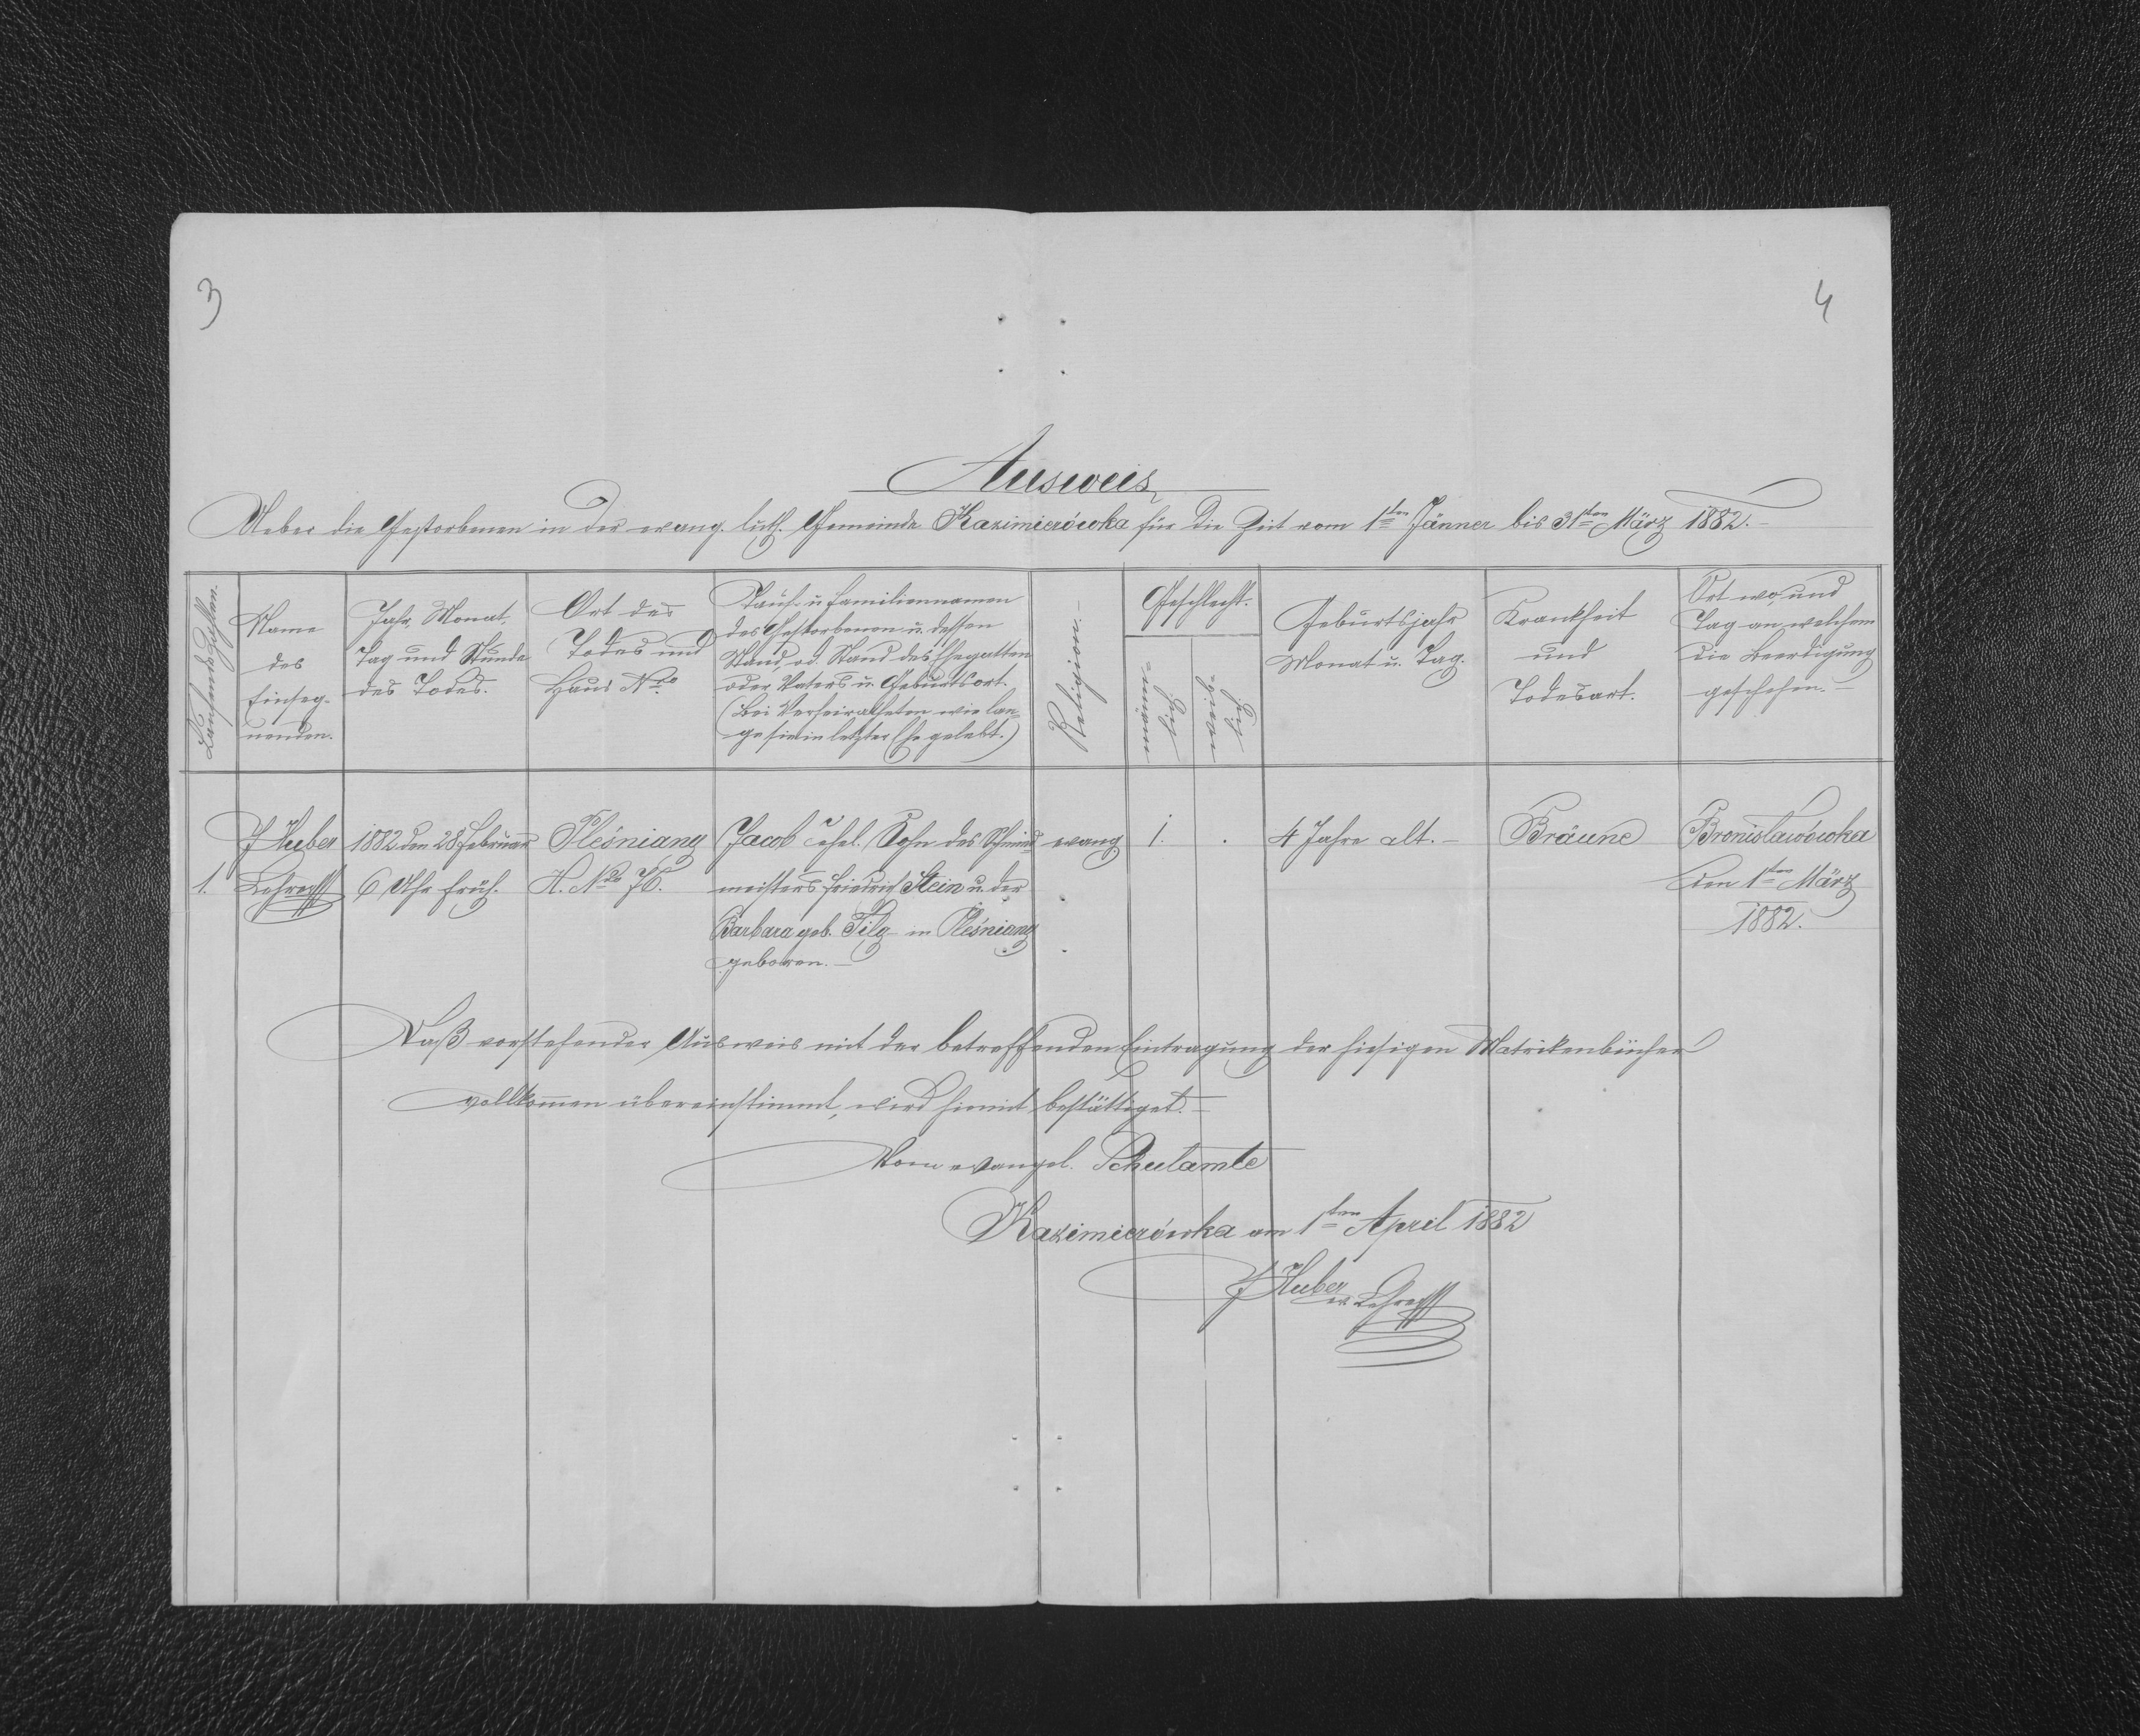 3
4
Ausweis
Ueber die Gestorbenen in der evang. luth. Gemeinde Kazimierówka für die Zeit vom 1ten Jänner bis 31ten März 1882.
Laufende Zahlen.
Name
des
Einseg-
nenden.
Jahr, Monat,
Tag und Stunde
des Todes.
Ort des
Todes und
Haus Nro
Tauf- u. Familiennamen
des Gestorbenen u. dessen
Stand, od. Stand des Ehegatten
oder Vaters u. Geburtsort.
(bei Verheiratheten wie lan-
ge sie in letzter Ehe gelebt.)
Religion.
Geschlecht.
männ-
lich
weib-
lich
Geburtsjahr
Monat u. Tag.
Krankheit
und
Todesart.
Ort wo, und
Tag an welchem
die Beerdigung
geschehen. –
1.
J Huber
Lehrer
1882 den 28 Februar
6 Uhr früh.
Pleśniany
H. Nro 76.
Jacob ehel. Sohn des Schmied-
meisters Friedrich Stein u. der
Barbara geb. Filg in Pleśniany
geboren. –
evang.
1.
.
4 Jahre alt. –
Bräune
Bronislawówka
den 1ten März
1882.
Daß vorstehender Ausweis mit der betreffenden Eintragung der hiesigen Matrikenbücher
vollkommen übereinstimmt, wird hiemit bestättiget. –
Vom evangel. Schulamte
Kazimierówka am 1ten April 1882
J Huber
ev. Lehrer